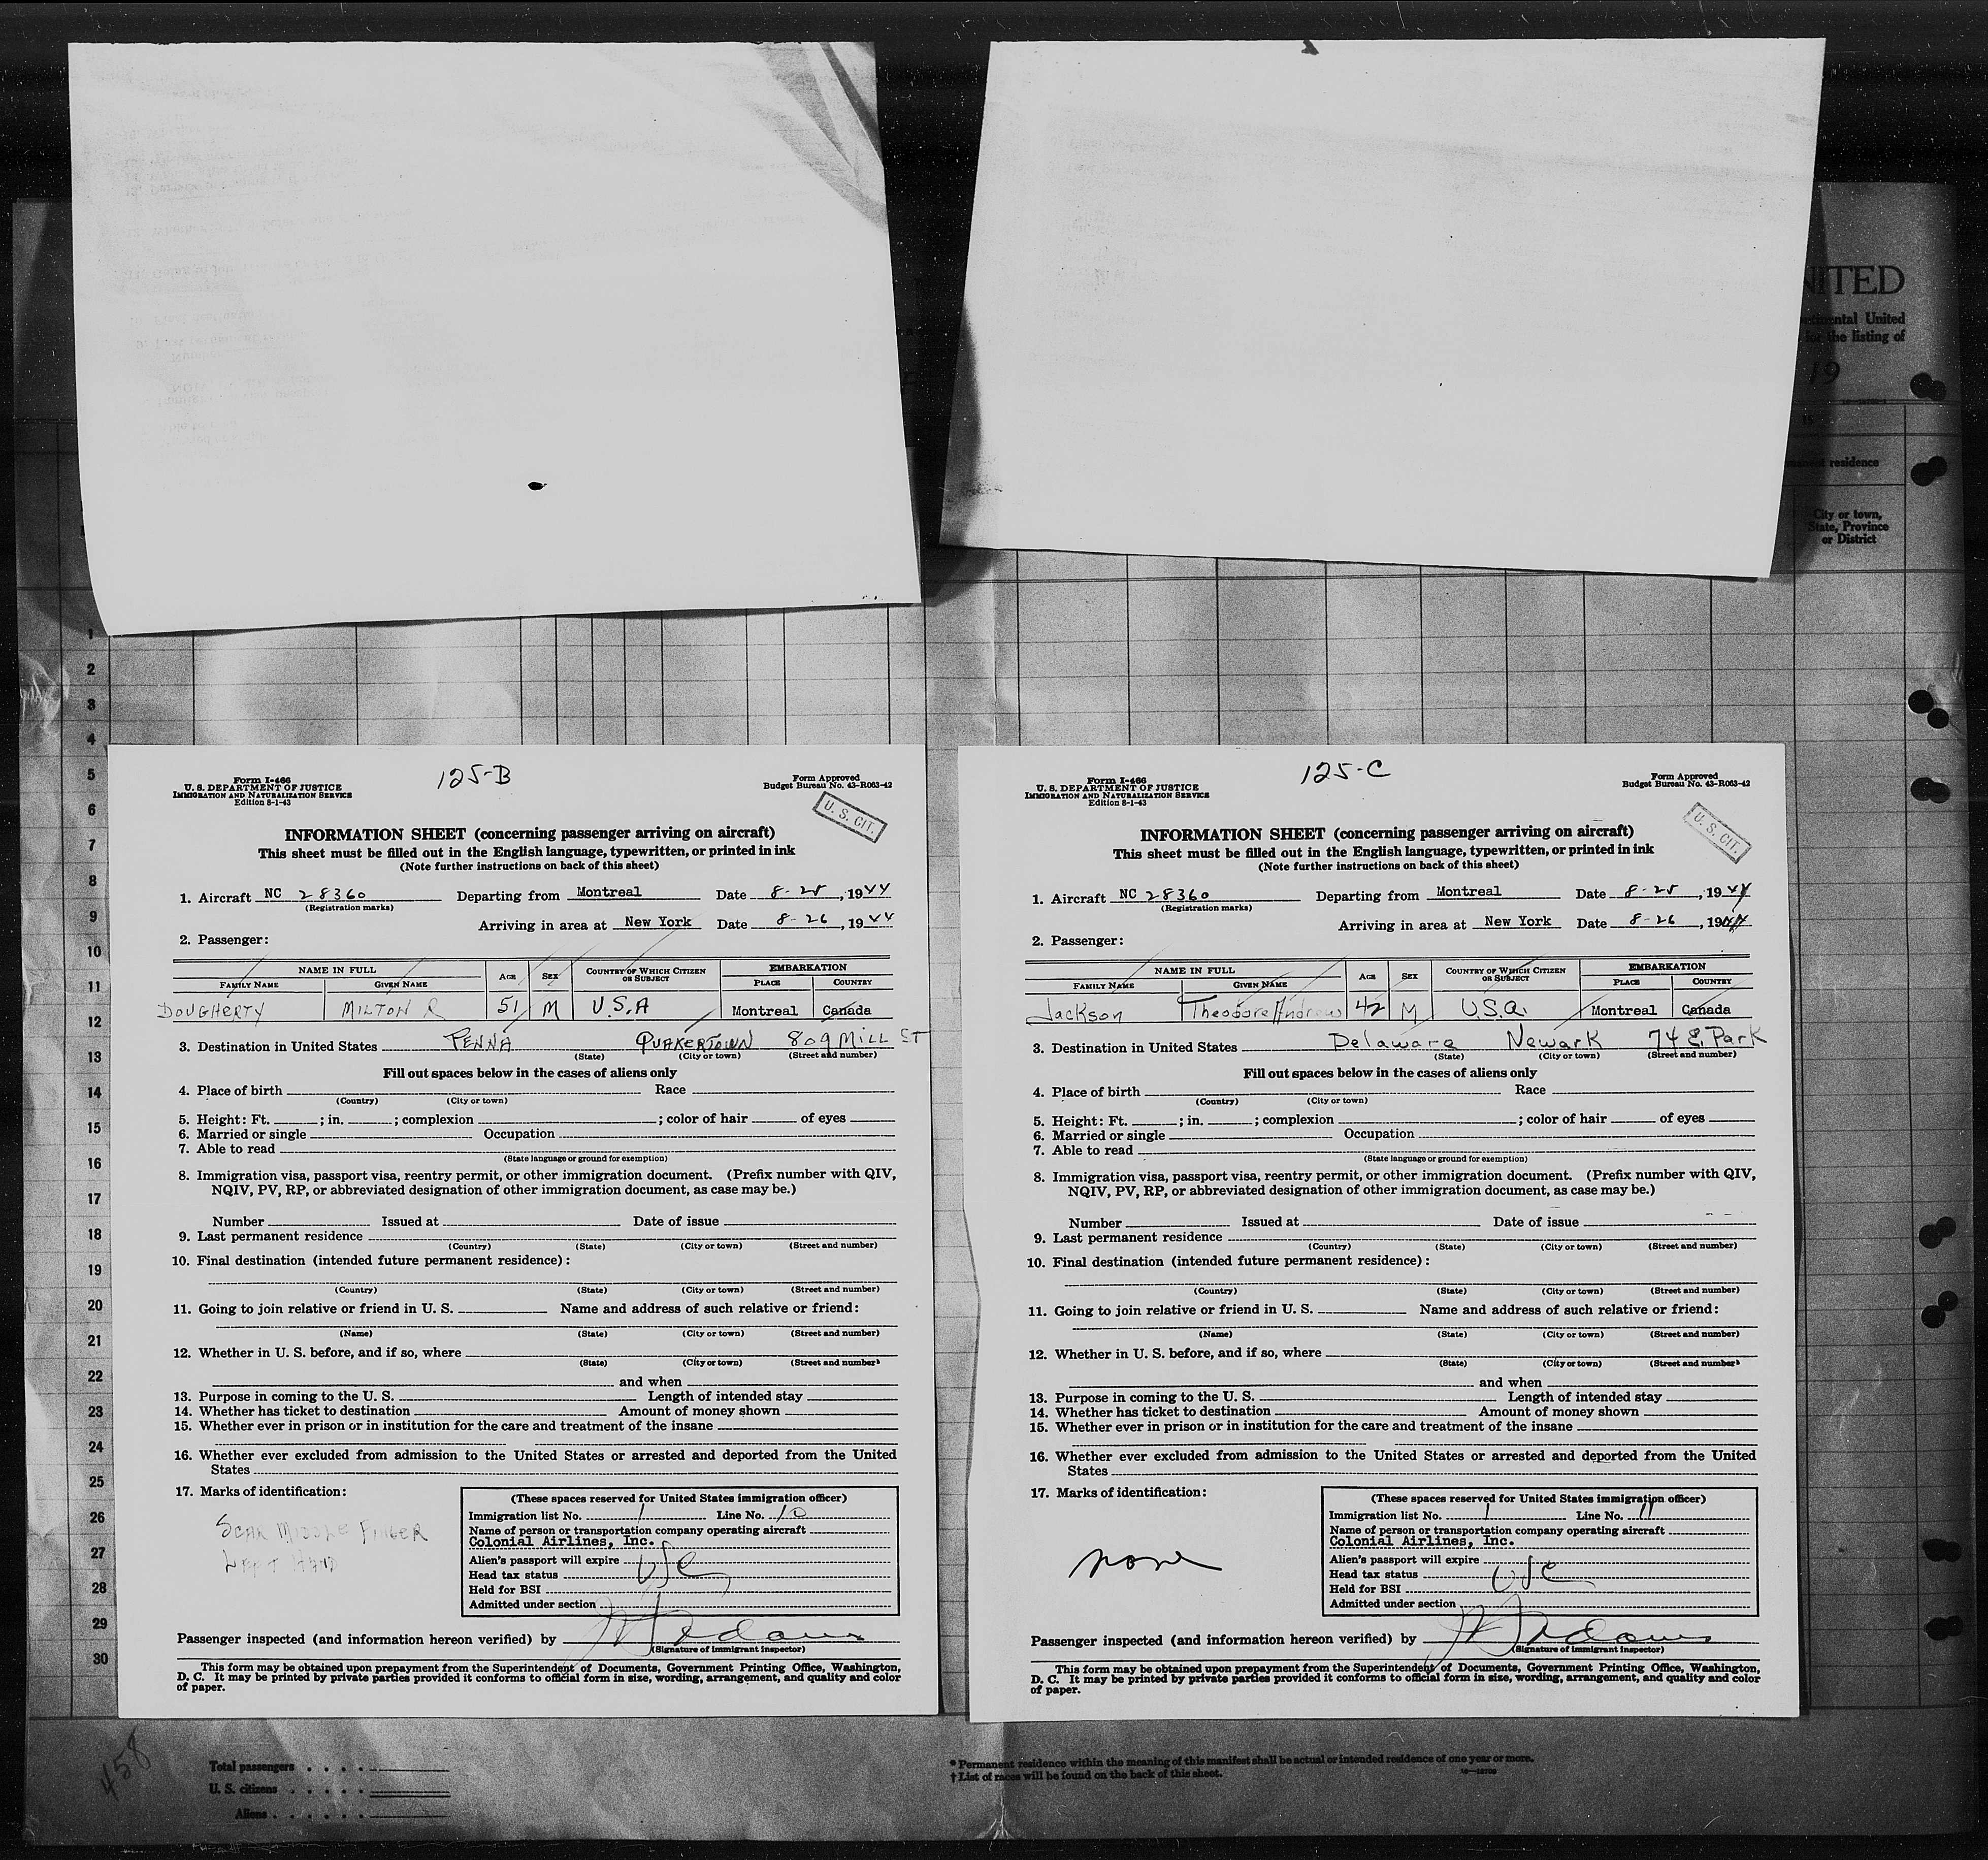 NITED
ntinental United
for the listing of
19
residence
City or town,
State, Province
or District
1
2
3
4
5
6
7
8
9
10
11
12
13
14
15
16
17
18
19
20
21
22
23
24
25
26
27
28
29
30
125-B
Form I-466
U. S. DEPARTMENT OF JUSTICE
IMMIGRATION AND NATURALIZATION SERVICE
Edition 8-1-43
Form Approved
Budget Bureau No. 43-R063-42
U. S. CIT.
INFORMATION SHEET (concerning passenger arriving on aircraft)
This sheet must be filled out in the English language, typewritten, or printed in ink
(Note further instructions on back of this sheet)
1. Aircraft NC 28360 Departing from Montreal Date 8-25, 1944
(Registration marks)
Arriving in area at New York Date 8-26, 1944
2. Passenger:
NAME IN FULL AGE SEX COUNTRY OF WHICH CITIZEN OR SUBJECT EMBARKATION
FAMILY NAME GIVEN NAME PLACE COUNTRY
DOUGHERTY MILTON R 51 M U.S.A Montreal Canada
3. Destination in United States PENNA QUAKERTOWN 809 MILL ST
(State) (City or town) (Street and number)
Fill out spaces below in the cases of aliens only
4. Place of birth Race
(Country) (City or town)
5. Height: Ft. ; in. ; complexion ; color of hair of eyes
6. Married or single Occupation
7. Able to read
(State language or ground for exemption)
8. Immigration visa, passport visa, reentry permit, or other immigration document. (Prefix number with QIV,
NQIV, PV, RP, or abbreviated designation of other immigration document, as case may be.)
Number Issued at Date of issue
9. Last permanent residence
(Country) (State) (City or town) (Street and number)
10. Final destination (intended future permanent residence):
(Country) (State) (City or town) (Street and number)
11. Going to join relative or friend in U. S. Name and address of such relative or friend:
(Name) (State) (City or town) (Street and number)
12. Whether in U. S. before, and if so, where
(State) (City or town) (Street and number)
and when
13. Purpose in coming to the U. S. Length of intended stay
14. Whether has ticket to destination Amount of money shown
15. Whether ever in prison or in institution for the care and treatment of the insane
16. Whether ever excluded from admission to the United States or arrested and deported from the United
States
17. Marks of identification:
SCAR MIDDLE FINGER
LEFT HAND
(These spaces reserved for United States immigration officer)
Immigration list No. 1 Line No. 10
Name of person or transportation company operating aircraft
Colonial Airlines, Inc.
Alien's passport will expire
Head tax status USC
Held for BSI
Admitted under section
Passenger inspected (and information hereon verified) by
(Signature of immigrant inspector)
This form may be obtained upon prepayment from the Superintendent of Documents, Government Printing Office, Washington,
D. C. It may be printed by private parties provided it conforms to official form in size, wording, arrangement, and quality and color
of paper.
125-C
Form I-466
U. S. DEPARTMENT OF JUSTICE
IMMIGRATION AND NATURALIZATION SERVICE
Edition 8-1-43
Form Approved
Budget Bureau No. 43-R063-42
U. S. CIT.
INFORMATION SHEET (concerning passenger arriving on aircraft)
This sheet must be filled out in the English language, typewritten, or printed in ink
(Note further instructions on back of this sheet)
1. Aircraft NC 28360 Departing from Montreal Date 8-25, 1944
(Registration marks)
Arriving in area at New York Date 8-26, 1944
2. Passenger:
NAME IN FULL AGE SEX COUNTRY OF WHICH CITIZEN OR SUBJECT EMBARKATION
FAMILY NAME GIVEN NAME PLACE COUNTRY
Jackson Theodore Andrew 42 M U.S.A. Montreal Canada
3. Destination in United States Delaware Newark 74 E. Park
(State) (City or town) (Street and number)
Fill out spaces below in the cases of aliens only
4. Place of birth Race
(Country) (City or town)
5. Height: Ft. ; in. ; complexion ; color of hair of eyes
6. Married or single Occupation
7. Able to read
(State language or ground for exemption)
8. Immigration visa, passport visa, reentry permit, or other immigration document. (Prefix number with QIV,
NQIV, PV, RP, or abbreviated designation of other immigration document, as case may be.)
Number Issued at Date of issue
9. Last permanent residence
(Country) (State) (City or town) (Street and number)
10. Final destination (intended future permanent residence):
(Country) (State) (City or town) (Street and number)
11. Going to join relative or friend in U. S. Name and address of such relative or friend:
(Name) (State) (City or town) (Street and number)
12. Whether in U. S. before, and if so, where
(State) (City or town) (Street and number)
and when
13. Purpose in coming to the U. S. Length of intended stay
14. Whether has ticket to destination Amount of money shown
15. Whether ever in prison or in institution for the care and treatment of the insane
16. Whether ever excluded from admission to the United States or arrested and deported from the United
States
17. Marks of identification:
none
(These spaces reserved for United States immigration officer)
Immigration list No. 1 Line No. 11
Name of person or transportation company operating aircraft
Colonial Airlines, Inc.
Alien's passport will expire
Head tax status USC
Held for BSI
Admitted under section
Passenger inspected (and information hereon verified) by
(Signature of immigrant inspector)
This form may be obtained upon prepayment from the Superintendent of Documents, Government Printing Office, Washington,
D. C. It may be printed by private parties provided it conforms to official form in size, wording, arrangement, and quality and color
of paper.
458
Total passengers
U. S. citizens
Aliens
* Permanent residence within the meaning of this manifest shall be actual or intended residence of one year or more.
† List of races will be found on the back of this sheet.